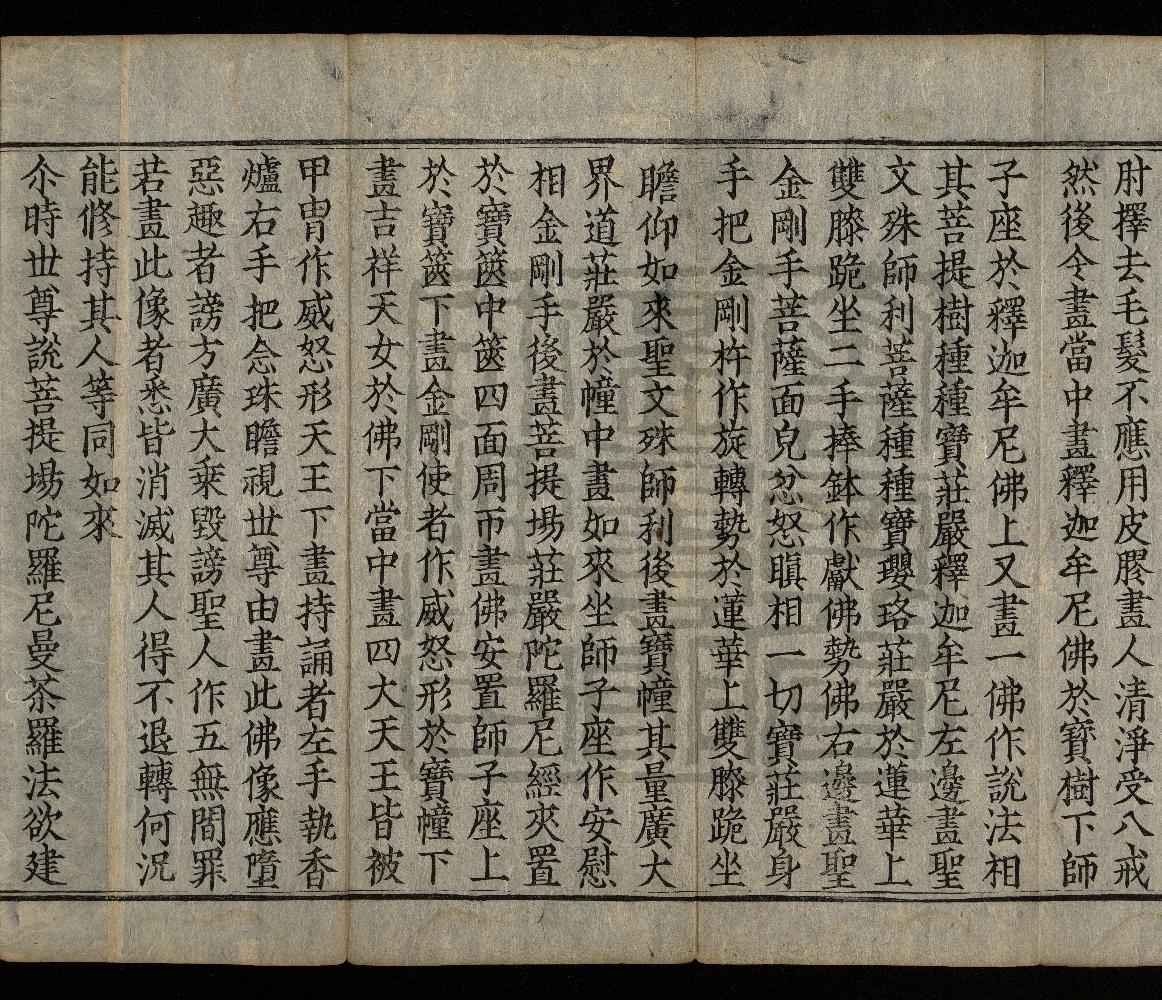 肘擇去毛髮不應用皮膠畫人清淨受八戒
然後令畫當中畫釋迦牟尼佛於寶樹下師
子座於釋迦牟尼佛上又畫一佛作說法相
其菩提樹種種寶莊嚴釋迦牟尼左邊畫聖
文殊師利菩薩種種寶瓔珞莊嚴於蓮華上
雙膝跪坐二手捧鉢作獻佛勢佛右邊畫聖
金剛手菩薩面皃忿怒瞋相一切寶莊嚴身
手把金剛杵作旋轉勢於蓮華上雙膝跪坐
瞻仰如來聖文殊師利後畫寶幢其量廣大
界道莊嚴於幢中畫如來坐師子座作安慰
相金剛手後畫菩提場莊嚴陀羅尼經夾置
於寶篋中篋四面周帀畫佛安置師子座上
於寶篋下畫金剛使者作威怒形於寶幢下
畫吉祥天女於佛下當中畫四大天王皆被
甲冑作威怒形天王下畫持誦者左手執香
爐右手把念珠瞻視世尊由畫此佛像應墮
惡趣者謗方廣大乗毀謗聖人作五無間罪
若畫此像者悉皆消滅其人得不退轉何況
能修持其人等同如來
尒時世尊說菩提場陀羅尼曼荼羅法欲建